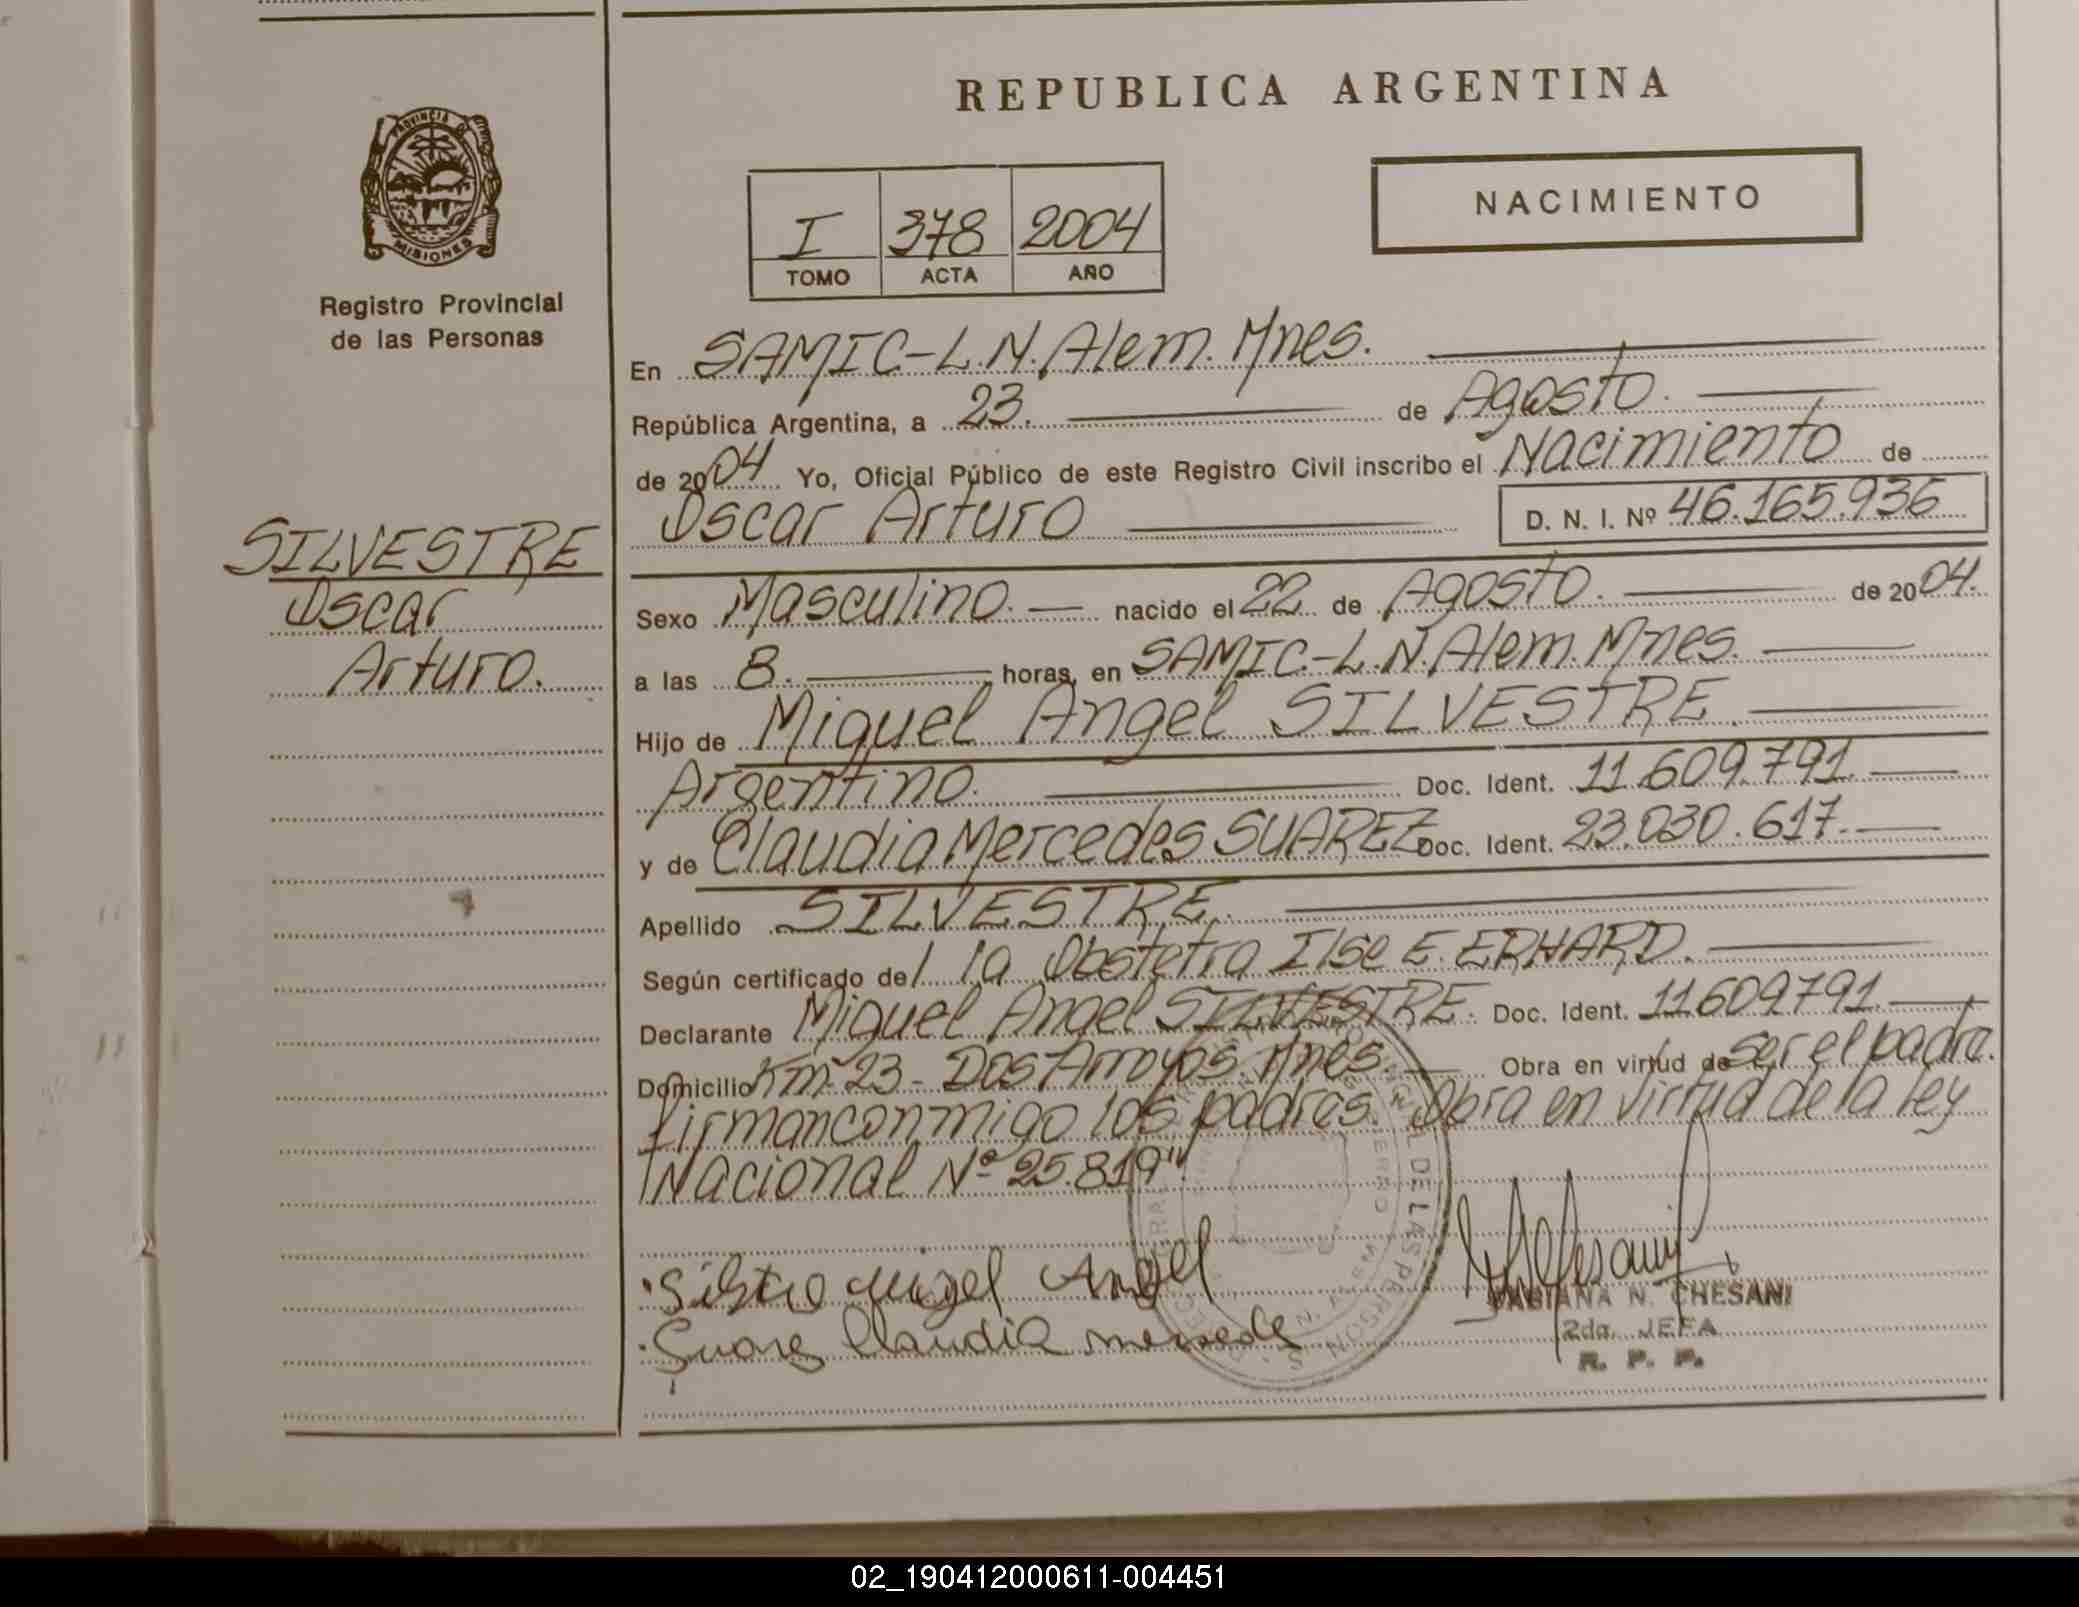 REPUBLICA ARGENTINA
PROVINCIA DE
MISIONES
Registro Provincial
de las Personas
I 378 2004
TOMO ACTA AÑO
NACIMIENTO
En SAMIC-L.N. Alem. Mnes.
República Argentina, a 23. de Agosto.
de 2004 Yo, Oficial Público de este Registro Civil inscribo el Nacimiento de
Oscar Arturo D. N. I. Nº 46.165.936
SILVESTRE
Oscar
Arturo.
Sexo Masculino. nacido el 22 de Agosto. de 2004.
a las 8. horas, en SAMIC.-L.N. Alem. Mnes.
Hijo de Miguel Angel SILVESTRE.
Argentino. Doc. Ident. 11.609.791.
y de Claudia Mercedes SUAREZ Doc. Ident. 23.030.617.
Apellido SILVESTRE.
Según certificado del la Obstetra Ilse E. ERHARD.
Declarante Miguel Angel SILVESTRE. Doc. Ident. 11609791.
Domicilio Km 23 - Dos Arroyos. Mnes. Obra en virtud de ser el padre.
firman conmigo los padres. "Obra en virtud de la ley
Nacional Nº 25.819"
Miguel Angel
Claudia
FABIANA N. CHESANI
2da. JEFA
R. P. P.
02_190412000611-004451